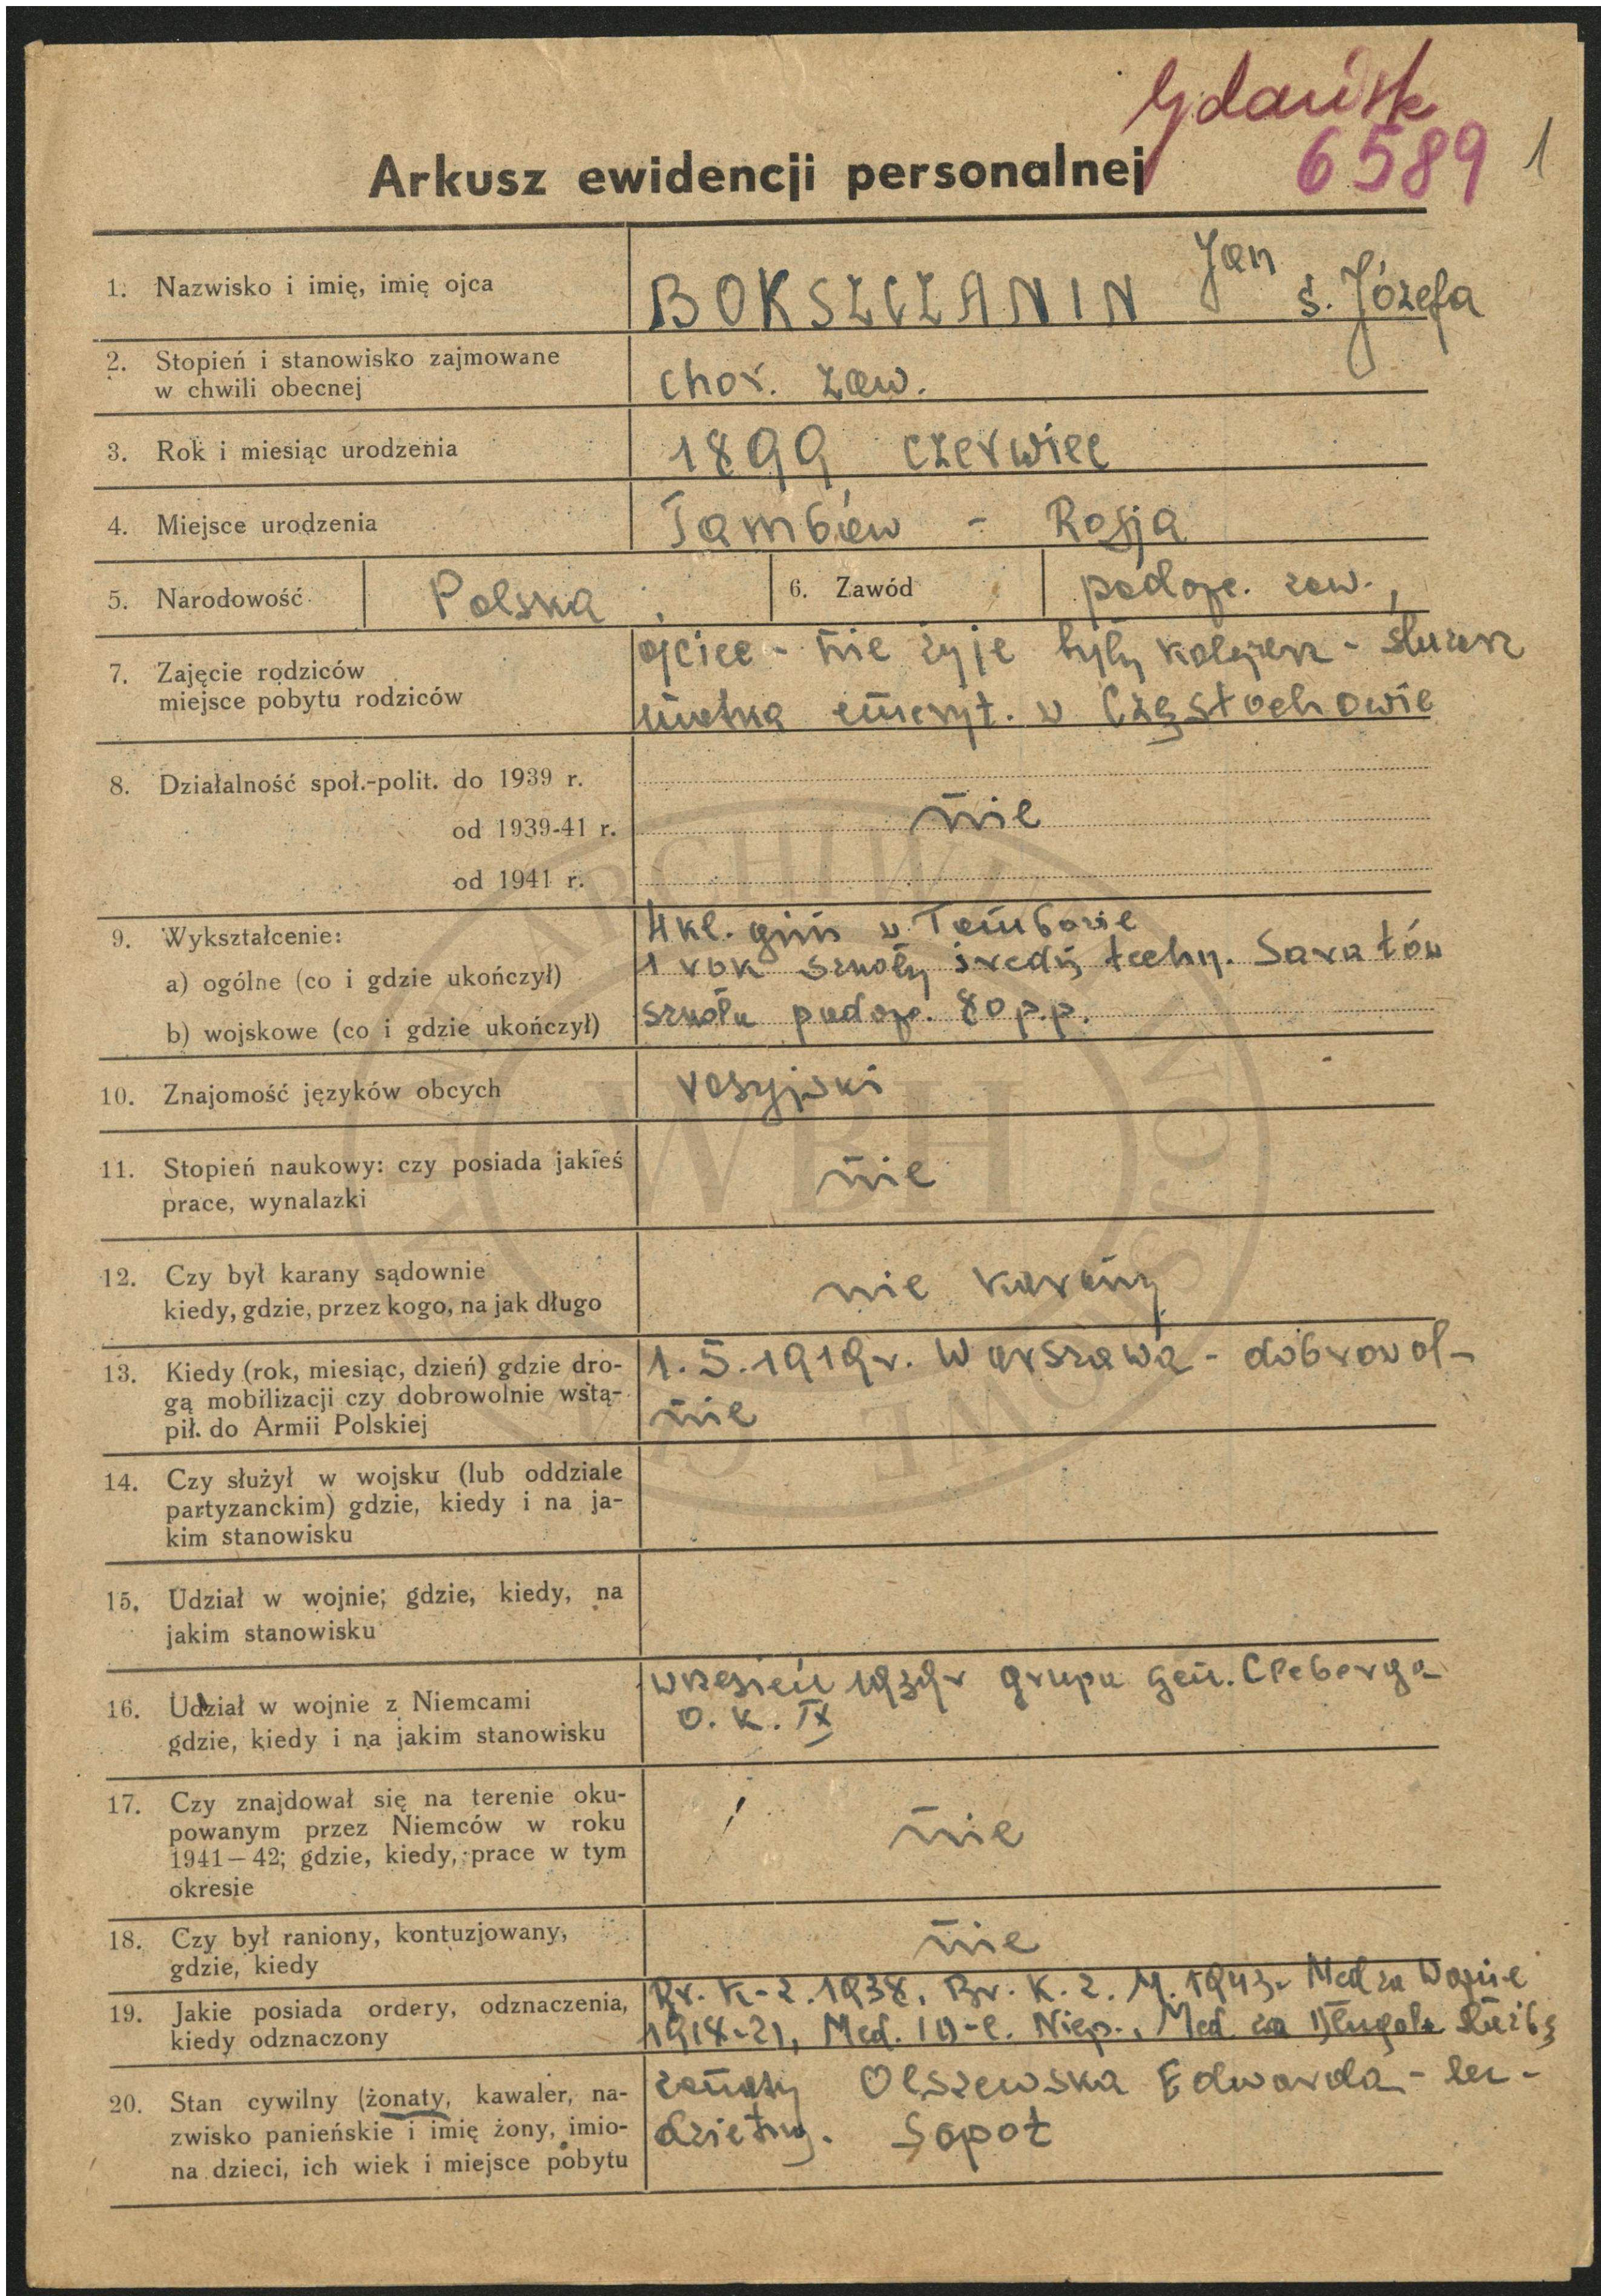 Gdańsk
6589 1
Arkusz ewidencji personalnej
1. Nazwisko i imię, imię ojca
BOKSZCZANIN Jan s. Józefa
2. Stopień i stanowisko zajmowane
w chwili obecnej
chor. zaw.
3. Rok i miesiąc urodzenia
1899 czerwiec
4. Miejsce urodzenia
Tambów - Rosja
5. Narodowość Polska 6. Zawód podofc. zaw.,
7. Zajęcie rodziców
miejsce pobytu rodziców
ojciec - nie żyje były kolejarz - ślusarz
matka emeryt. w Częstochowie
8. Działalność społ.-polit. do 1939 r.
od 1939-41 r.
nie
od 1941 r.
9. Wykształcenie:
4 kl. gim w Tambowie
a) ogólne (co i gdzie ukończył)
1 rok szkoły średń. techn. Saratów
b) wojskowe (co i gdzie ukończył)
szkoła podofc. 80 p.p.
10. Znajomość języków obcych
rosyjski
11. Stopień naukowy: czy posiada jakieś
prace, wynalazki
nie
12. Czy był karany sądownie
kiedy, gdzie, przez kogo, na jak długo
nie karany
13. Kiedy (rok, miesiąc, dzień) gdzie dro-
gą mobilizacji czy dobrowolnie wstą-
pił. do Armii Polskiej
1.5.1919 r. Warszawa - dobrowol-
nie
14. Czy służył w wojsku (lub oddziale
partyzanckim) gdzie, kiedy i na ja-
kim stanowisku
15. Udział w wojnie; gdzie, kiedy, na
jakim stanowisku
16. Udział w wojnie z Niemcami
gdzie, kiedy i na jakim stanowisku
wrzesień 1939 r grupa gen. Cleberga
O.K. IX
17. Czy znajdował się na terenie oku-
powanym przez Niemców w roku
1941-42; gdzie, kiedy, prace w tym
okresie
nie
18. Czy był raniony, kontuzjowany,
gdzie, kiedy
nie
19. Jakie posiada ordery, odznaczenia,
kiedy odznaczony
Br. K-z. 1938, Br. K. z. M. 1943. Med za Wojnę
1918-21, Med. 10-l. Niep., Med za Długol. Służbę
20. Stan cywilny (żonaty, kawaler, na-
zwisko panieńskie i imię żony, imio-
na dzieci, ich wiek i miejsce pobytu
żonaty Olszewska Edwarda - bez-
dzietny. Sopot
WBH